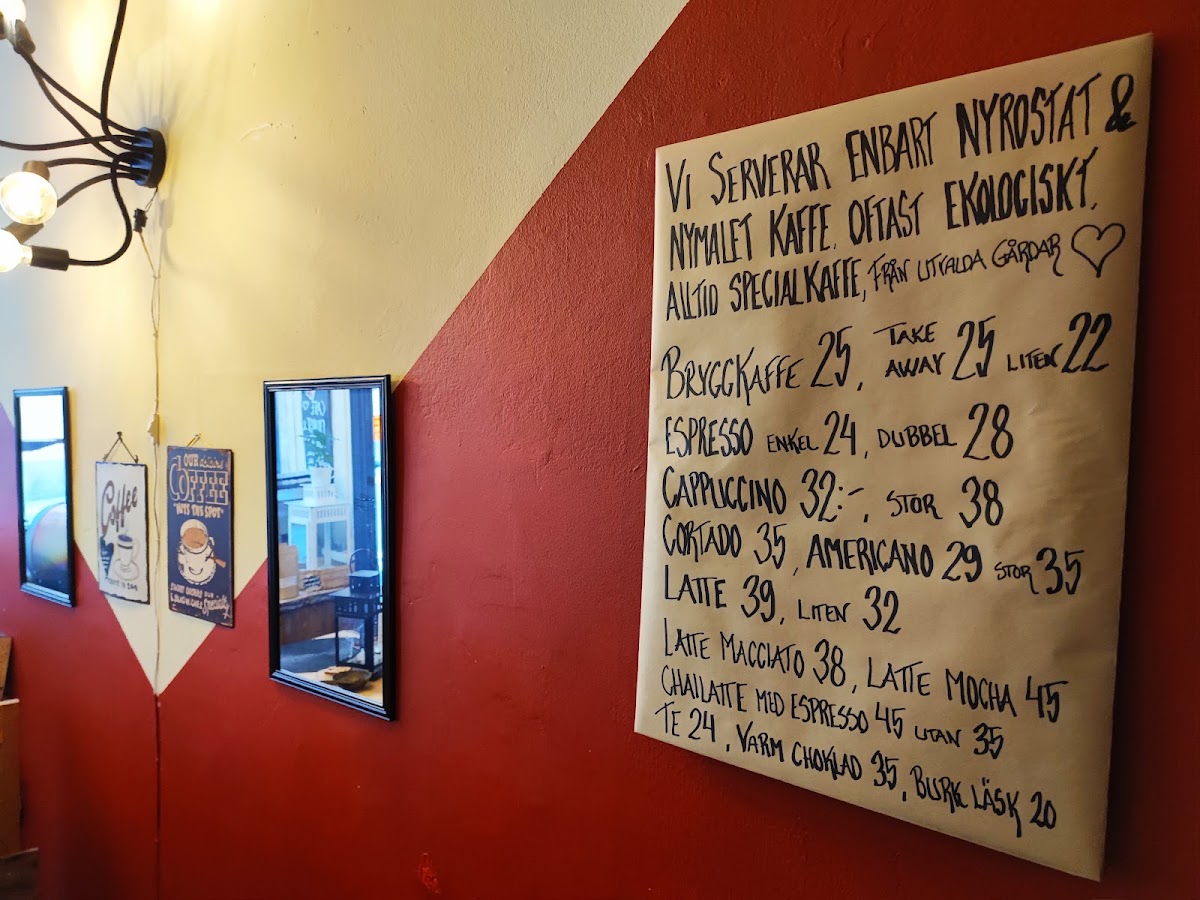 VI SERVERAR ENBART NYROSTAT &
NYMALET KAFFE. OFTAST EKOLOGISKT.
ALLTID SPECIALKAFFE, FRÅN UTVALDA GÅRDAR
BRYGGKAFFE 25, TAKE AWAY 25 LITEN 22
ESPRESSO ENKEL 24, DUBBEL 28
CAPPUCCINO 32:-, STOR 38
CORTADO 35, AMERICANO 29 STOR 35
LATTE 39, LITEN 32
LATTE MACCIATO 38, LATTE MOCHA 45
CHAILATTE MED ESPRESSO 45 UTAN 35
TE 24, VARM CHOKLAD 35, BURK LÄSK 20
Coffee
OUR
COFFEE
"HITS THE SPOT"
Specialty